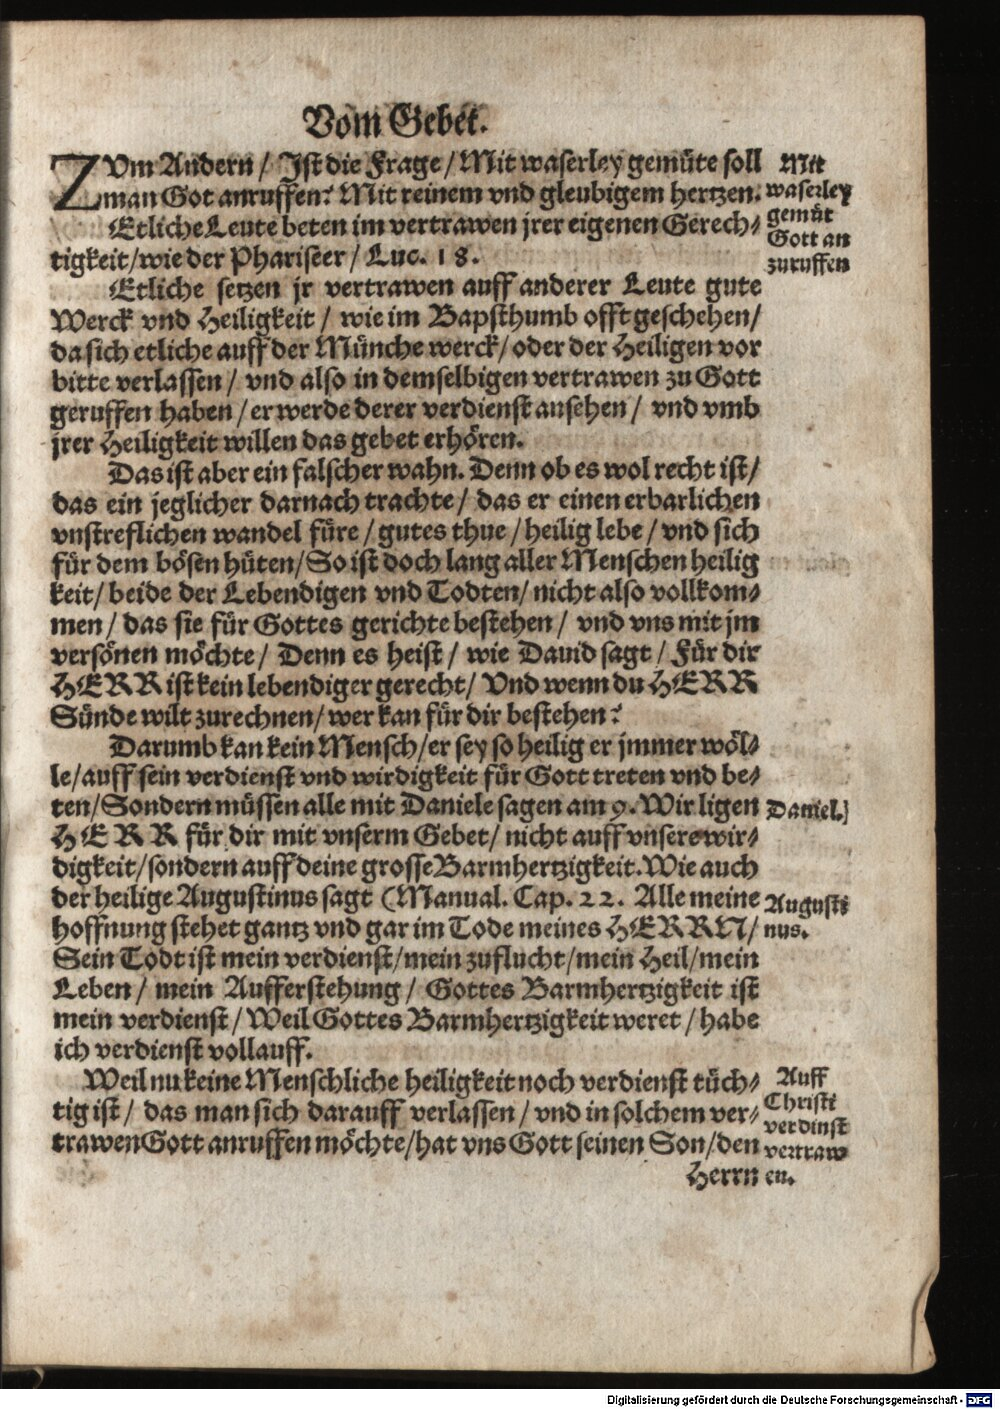 Vom Gebet.
ZVm Andern / Jst die Frage / Mit waserley gemüte soll
man Got anruffen? Mit reinem vnd gleubigem hertzen.
Etliche Leute beten im vertrawen jrer eigenen Gerech-
tigkeit/wie der Phariseer / Luc. 18.
Etliche setzen jr vertrawen auff anderer Leute gute
Werck vnd Heiligkeit / wie im Bapsthumb offt geschehen/
da sich etliche auff der Münche werck/ oder der Heiligen vor
bitte verlassen / vnd also in demselbigen vertrawen zu Gott
geruffen haben / er werde derer verdienst ansehen / vnd vmb
jrer Heiligkeit willen das gebet erhören.
Das ist aber ein falscher wahn. Denn ob es wol recht ist/
das ein jeglicher darnach trachte / das er einen erbarlichen
vnstreflichen wandel füre / gutes thue / heilig lebe / vnd sich
für dem bösen hüten/ So ist doch lang aller Menschen heilig
keit/ beide der Lebendigen vnd Todten/ nicht also vollkom-
men / das sie für Gottes gerichte bestehen / vnd vns mit jm
versönen möchte / Denn es heist / wie Dauid sagt / Für dir
HERR ist kein lebendiger gerecht/ Vnd wenn du HERR
Sünde wilt zurechnen/ wer kan für dir bestehen?
Darumb kan kein Mensch/er sey so heilig er jmmer wöl-
le/auff sein verdienst vnd wirdigkeit für Gott treten vnd be-
ten/Sondern müssen alle mit Daniele sagen am 9. Wir ligen
HERR für dir mit vnserm Gebet/ nicht auff vnsere wir-
digkeit/sondern auff deine grosse Barmhertzigkeit. Wie auch
der heilige Augustinus sagt (Manual. Cap. 22. Alle meine
hoffnung stehet gantz vnd gar im Tode meines HERRN/
Sein Todt ist mein verdienst/mein zuflucht/mein Heil/mein
Leben / mein Aufferstehung / Gottes Barmhertzigkeit ist
mein verdienst / Weil Gottes Barmhertzigkeit weret / habe
ich verdienst vollauff.
Weil nu keine Menschliche heiligkeit noch verdienst tüch-
tig ist / das man sich darauff verlassen / vnd in solchem ver-
trawen Gott anruffen möchte/hat vns Gott seinen Son/den
Herrn
Mit
waserley
gemüt
Gott an
zuruffen
Daniel.
Augusti
nus.
Auff
Christi
verdinst
vertraw
en.
Digitalisierung gefördert durch die Deutsche Forschungsgemeinschaft - DFG